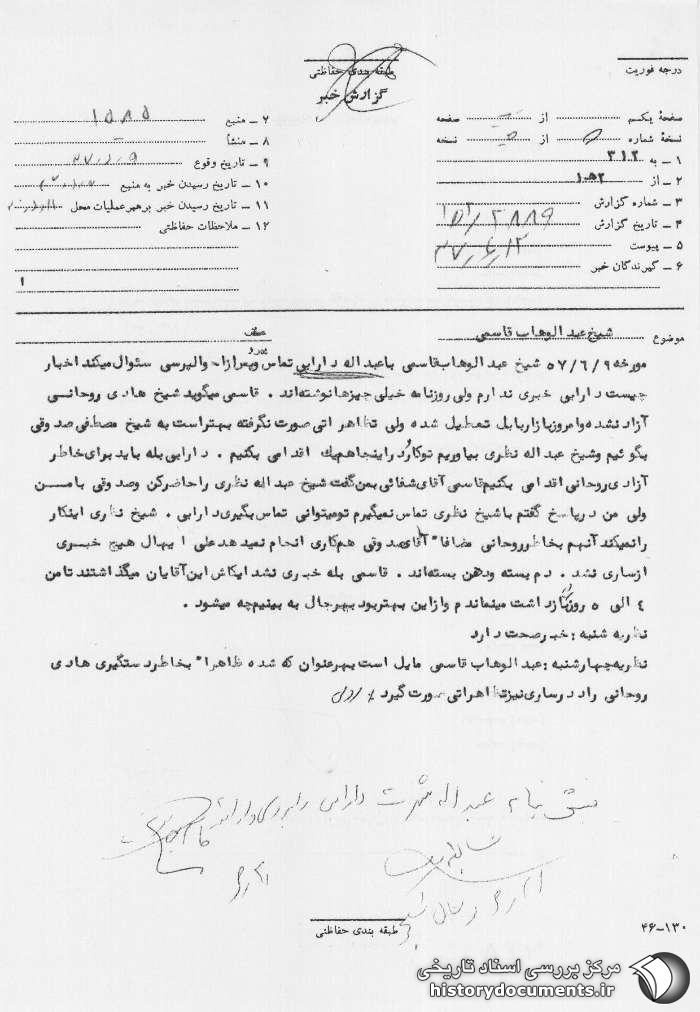 درجه فوریت
طبقه بندی حفاظتی
گزارش خبر
صفحهٔ یکم از صفحه
نسخهٔ شماره از نسخه
۱ - به ۳۱۲
۲ - از ۱۰ه۲
۳ - شماره گزارش
۴ - تاریخ گزارش
۵ - پیوست
۶ - گیرندگان خبر
۷ - منبع ۱۵۸۵
۸ - منشأ -
۹ - تاریخ وقوع
۱۰ - تاریخ رسیدن خبر به منبع
۱۱ - تاریخ رسیدن خبر برهبر عملیات محل
۱۲ - ملاحظات حفاظتی
۱
موضوع شیخ عبدالوهاب قاسمی
مورخه ۵۷/۶/۹ شیخ عبدالوهاب قاسمی با عبداله دارابی تماس وپس ازاحوالپرسی سئوال میکند اخبار
چیست دارابی خبری ندارم ولی روزنامه خیلی چیزها نوشته‌اند . قاسمی میگوید شیخ هادی روحانی
آزاد نشده وامروز بازار بابل تعطیل شده ولی تظاهراتی صورت نگرفته بهتر است به شیخ مصطفی صدوقی
بگوئیم وشیخ عبداله نظری بیاوریم توکارد راینجاهم یك اقدامی بکنیم . دارابی بله باید برای خاطر
آزادی روحانی اقدامی بکنیم قاسمی آقای شفائی بمن گفت شیخ عبداله نظری را حاضر کن وصدوقی بامن
ولی من در پاسخ گفتم با شیخ نظری تماس نمیگیرم تو میتوانی تماس بگیری دارابی . شیخ نظری اینکار
را نمیکند آنهم بخاطر روحانی مضافا" آقای صدوقی هم کاری انجام نمیدهد علی ایحال هیچ خبری
از ساری نشد . دم بسته ودهن بسته‌اند . قاسمی بله خبری نشد ایکاش این آقایان میگذاشتند تا من
٤ الی ٥ روز بازداشت میماندم واز این بهتر بود بهرحال به بینیم چه میشود .
نظریه شنبه : خبر صحت دارد
نظریه چهارشنبه : عبدالوهاب قاسمی مایل است بهر عنوان که شده ظاهرا" بخاطر دستگیری هادی
روحانی را در ساری نیز تظاهراتی صورت گیرد
عبداله شهرت دارابی
طبقه بندی حفاظتی
۴۶-۱۳۰
مرکز بررسی اسناد تاریخی
historydocuments.ir